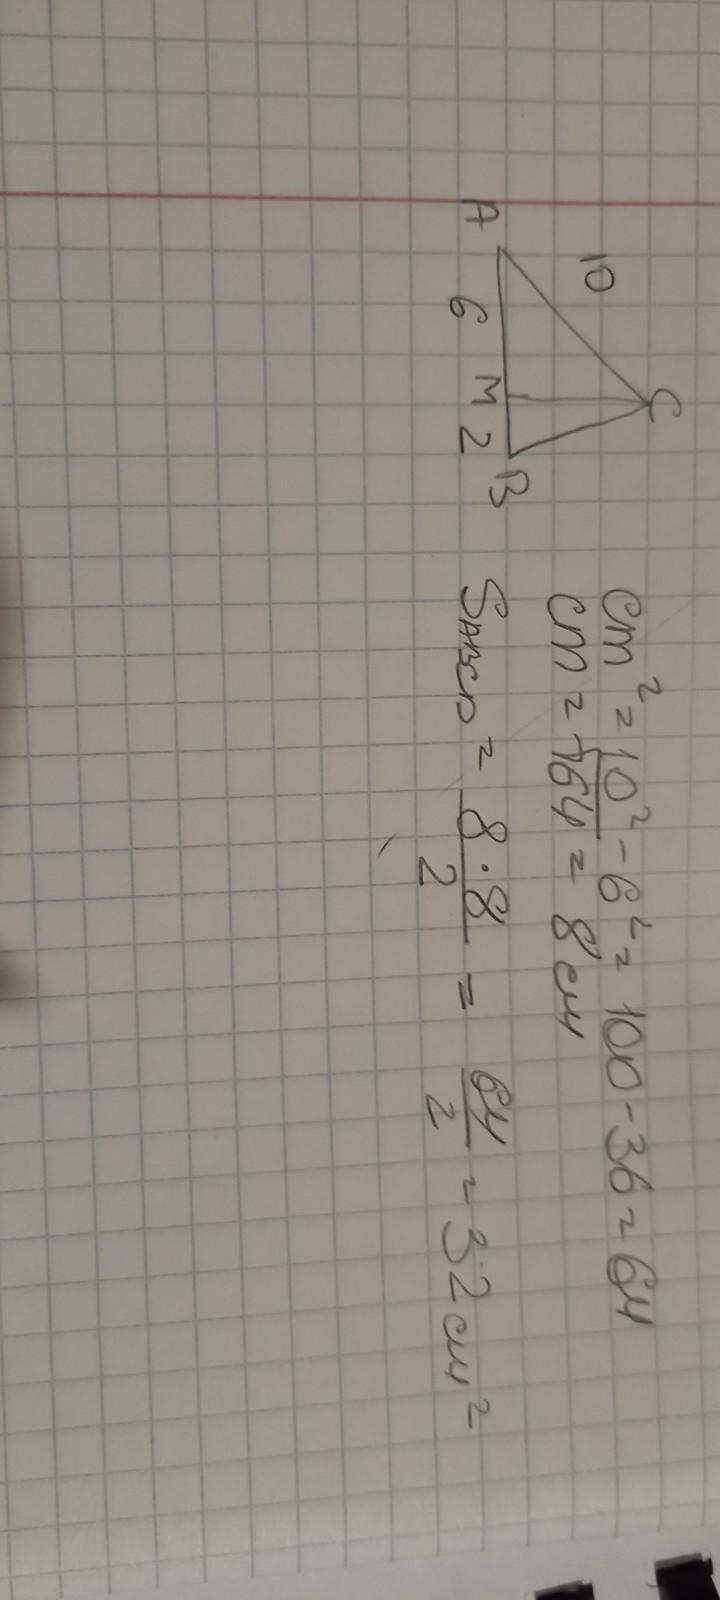 C
10
A 6 M 2 B
cm² = 10² - 6² = 100 - 36 = 64
cm = √64 = 8 см
SABCD = 8·8/2 = 64/2 = 32 см²